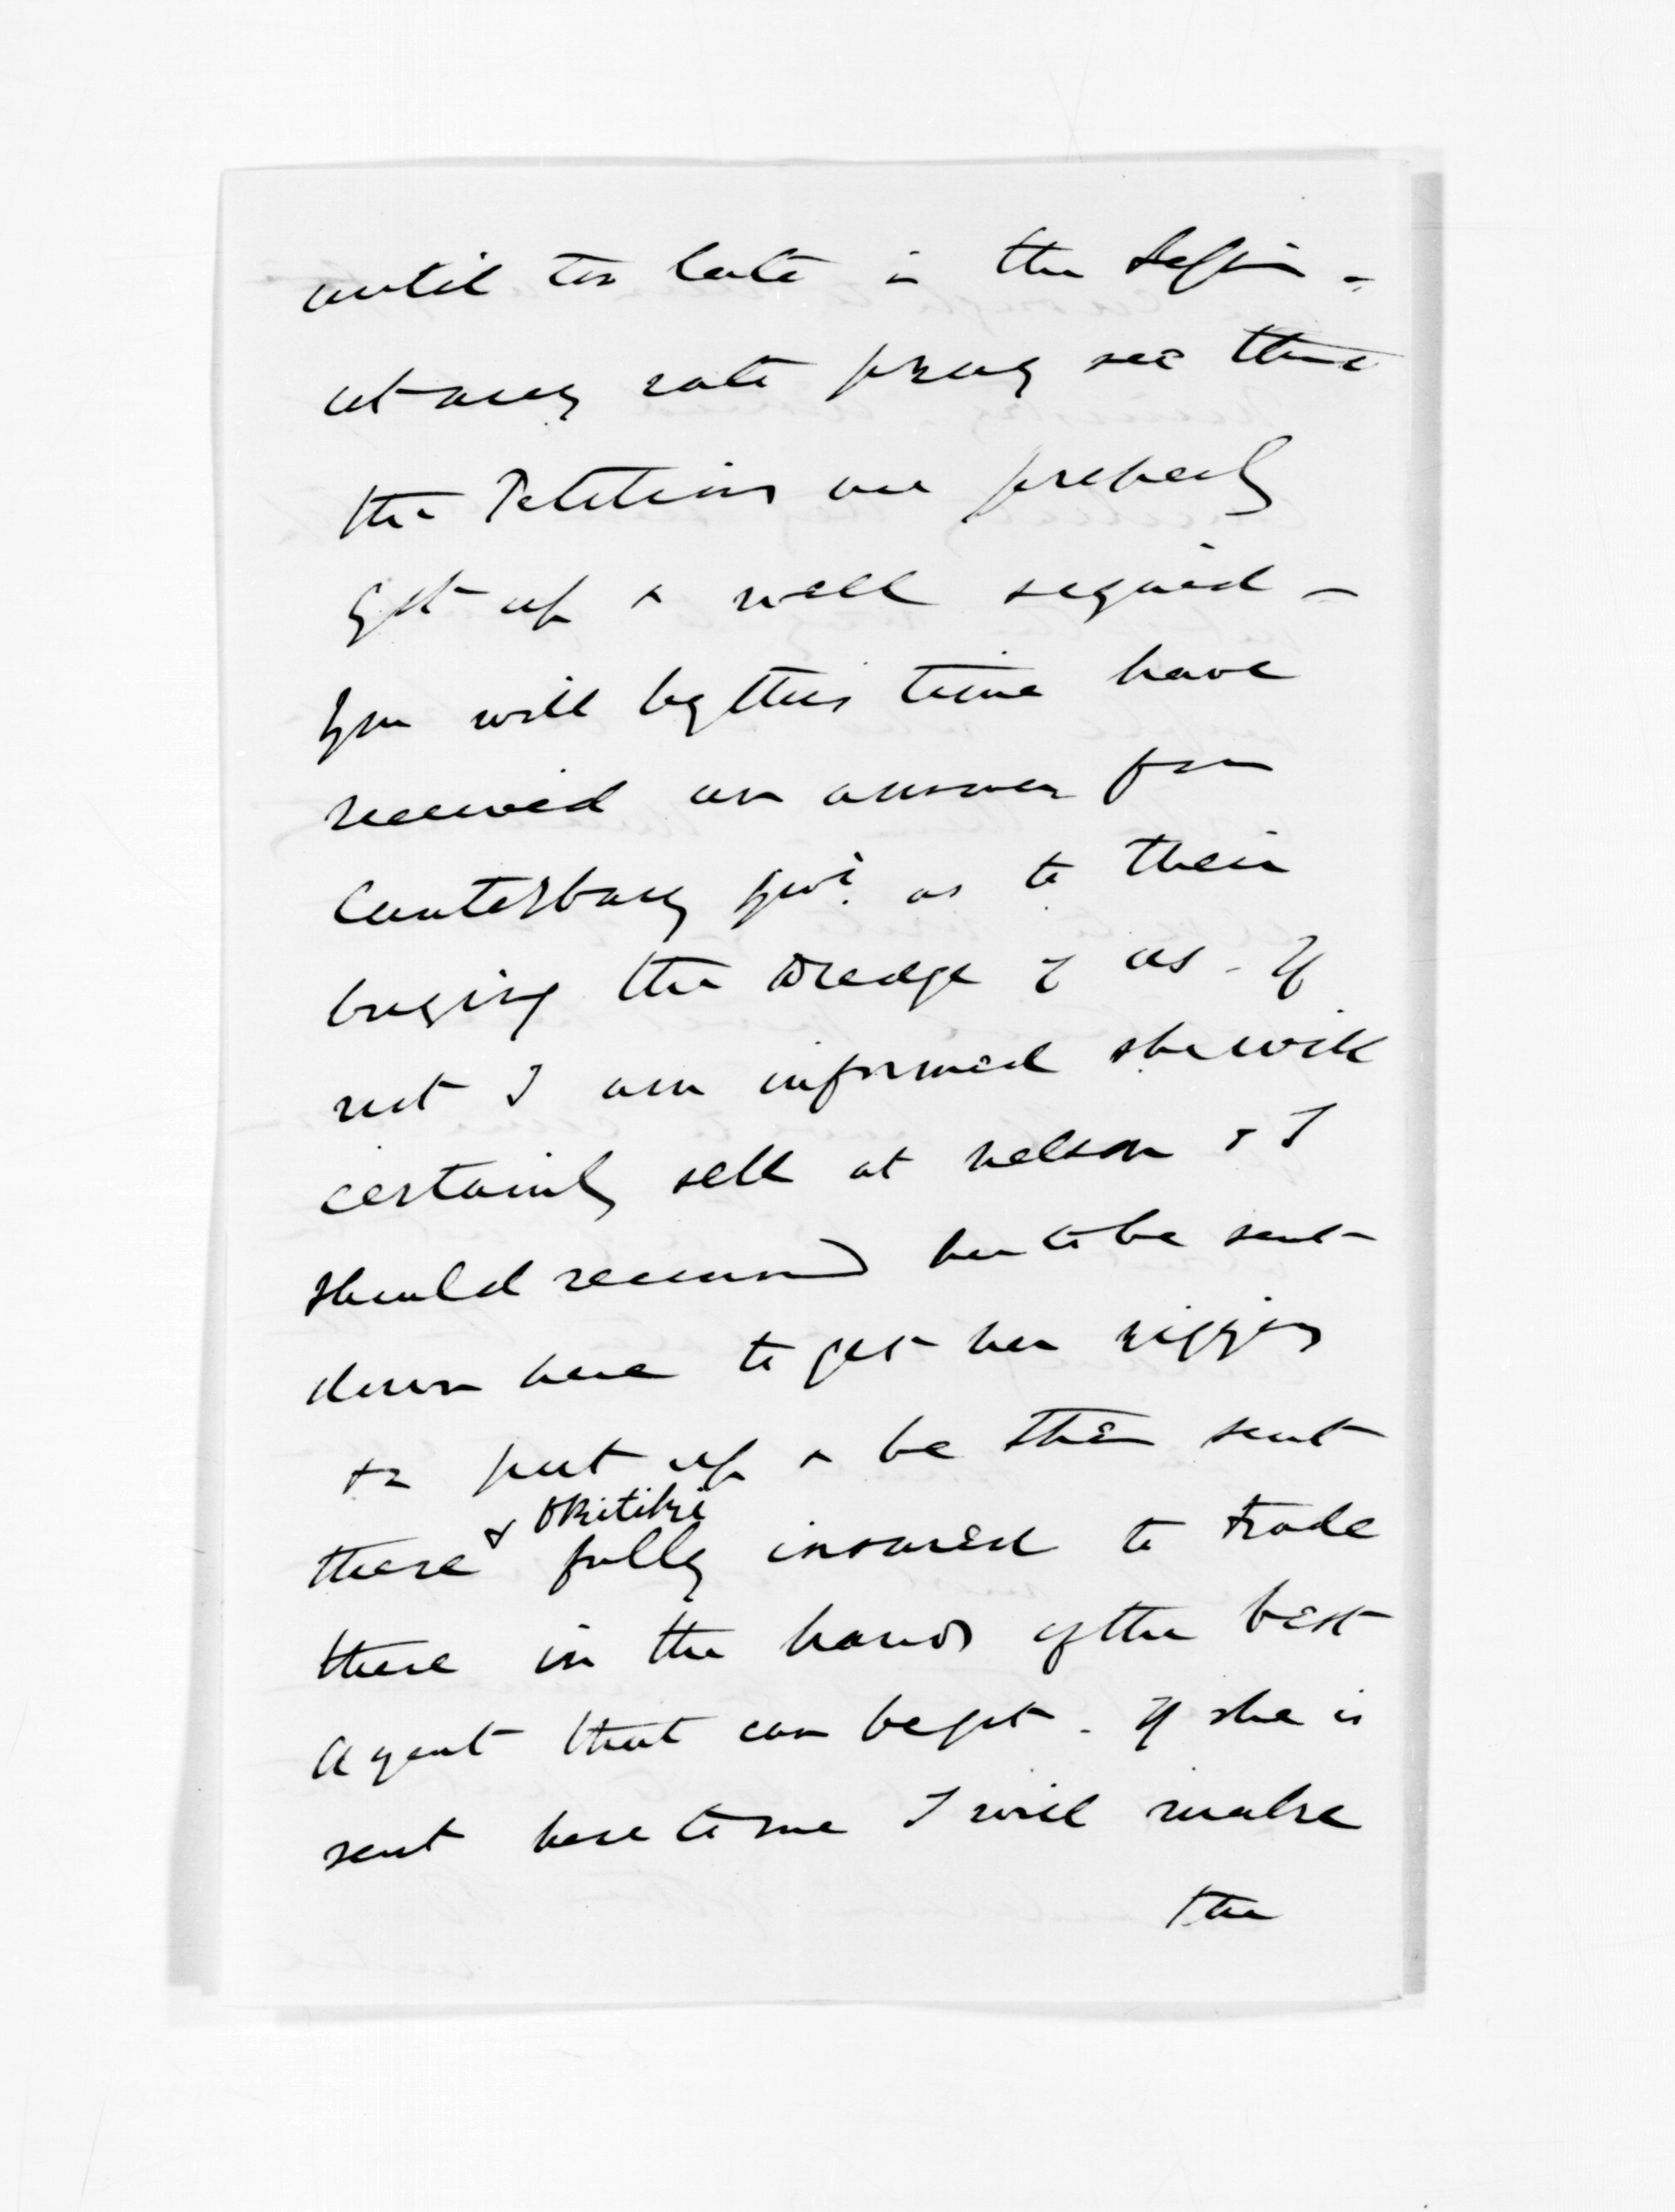 until too late in the Session -
at any rate pray see that
the Petitions are properly
got up & well signed -
You will by this time have
received an answer from
Canterbury Govt. as to their
buying the Dredge of us - If
not I am informed she will
certainly sell at Nelson & I
should recommend her to be sent
down here to get her rigging
&c put up & be then sent
there & Okitiki fully insured to trade
there in the hands of the best
Agent that can be got. If she is
sent here to me I will make
the